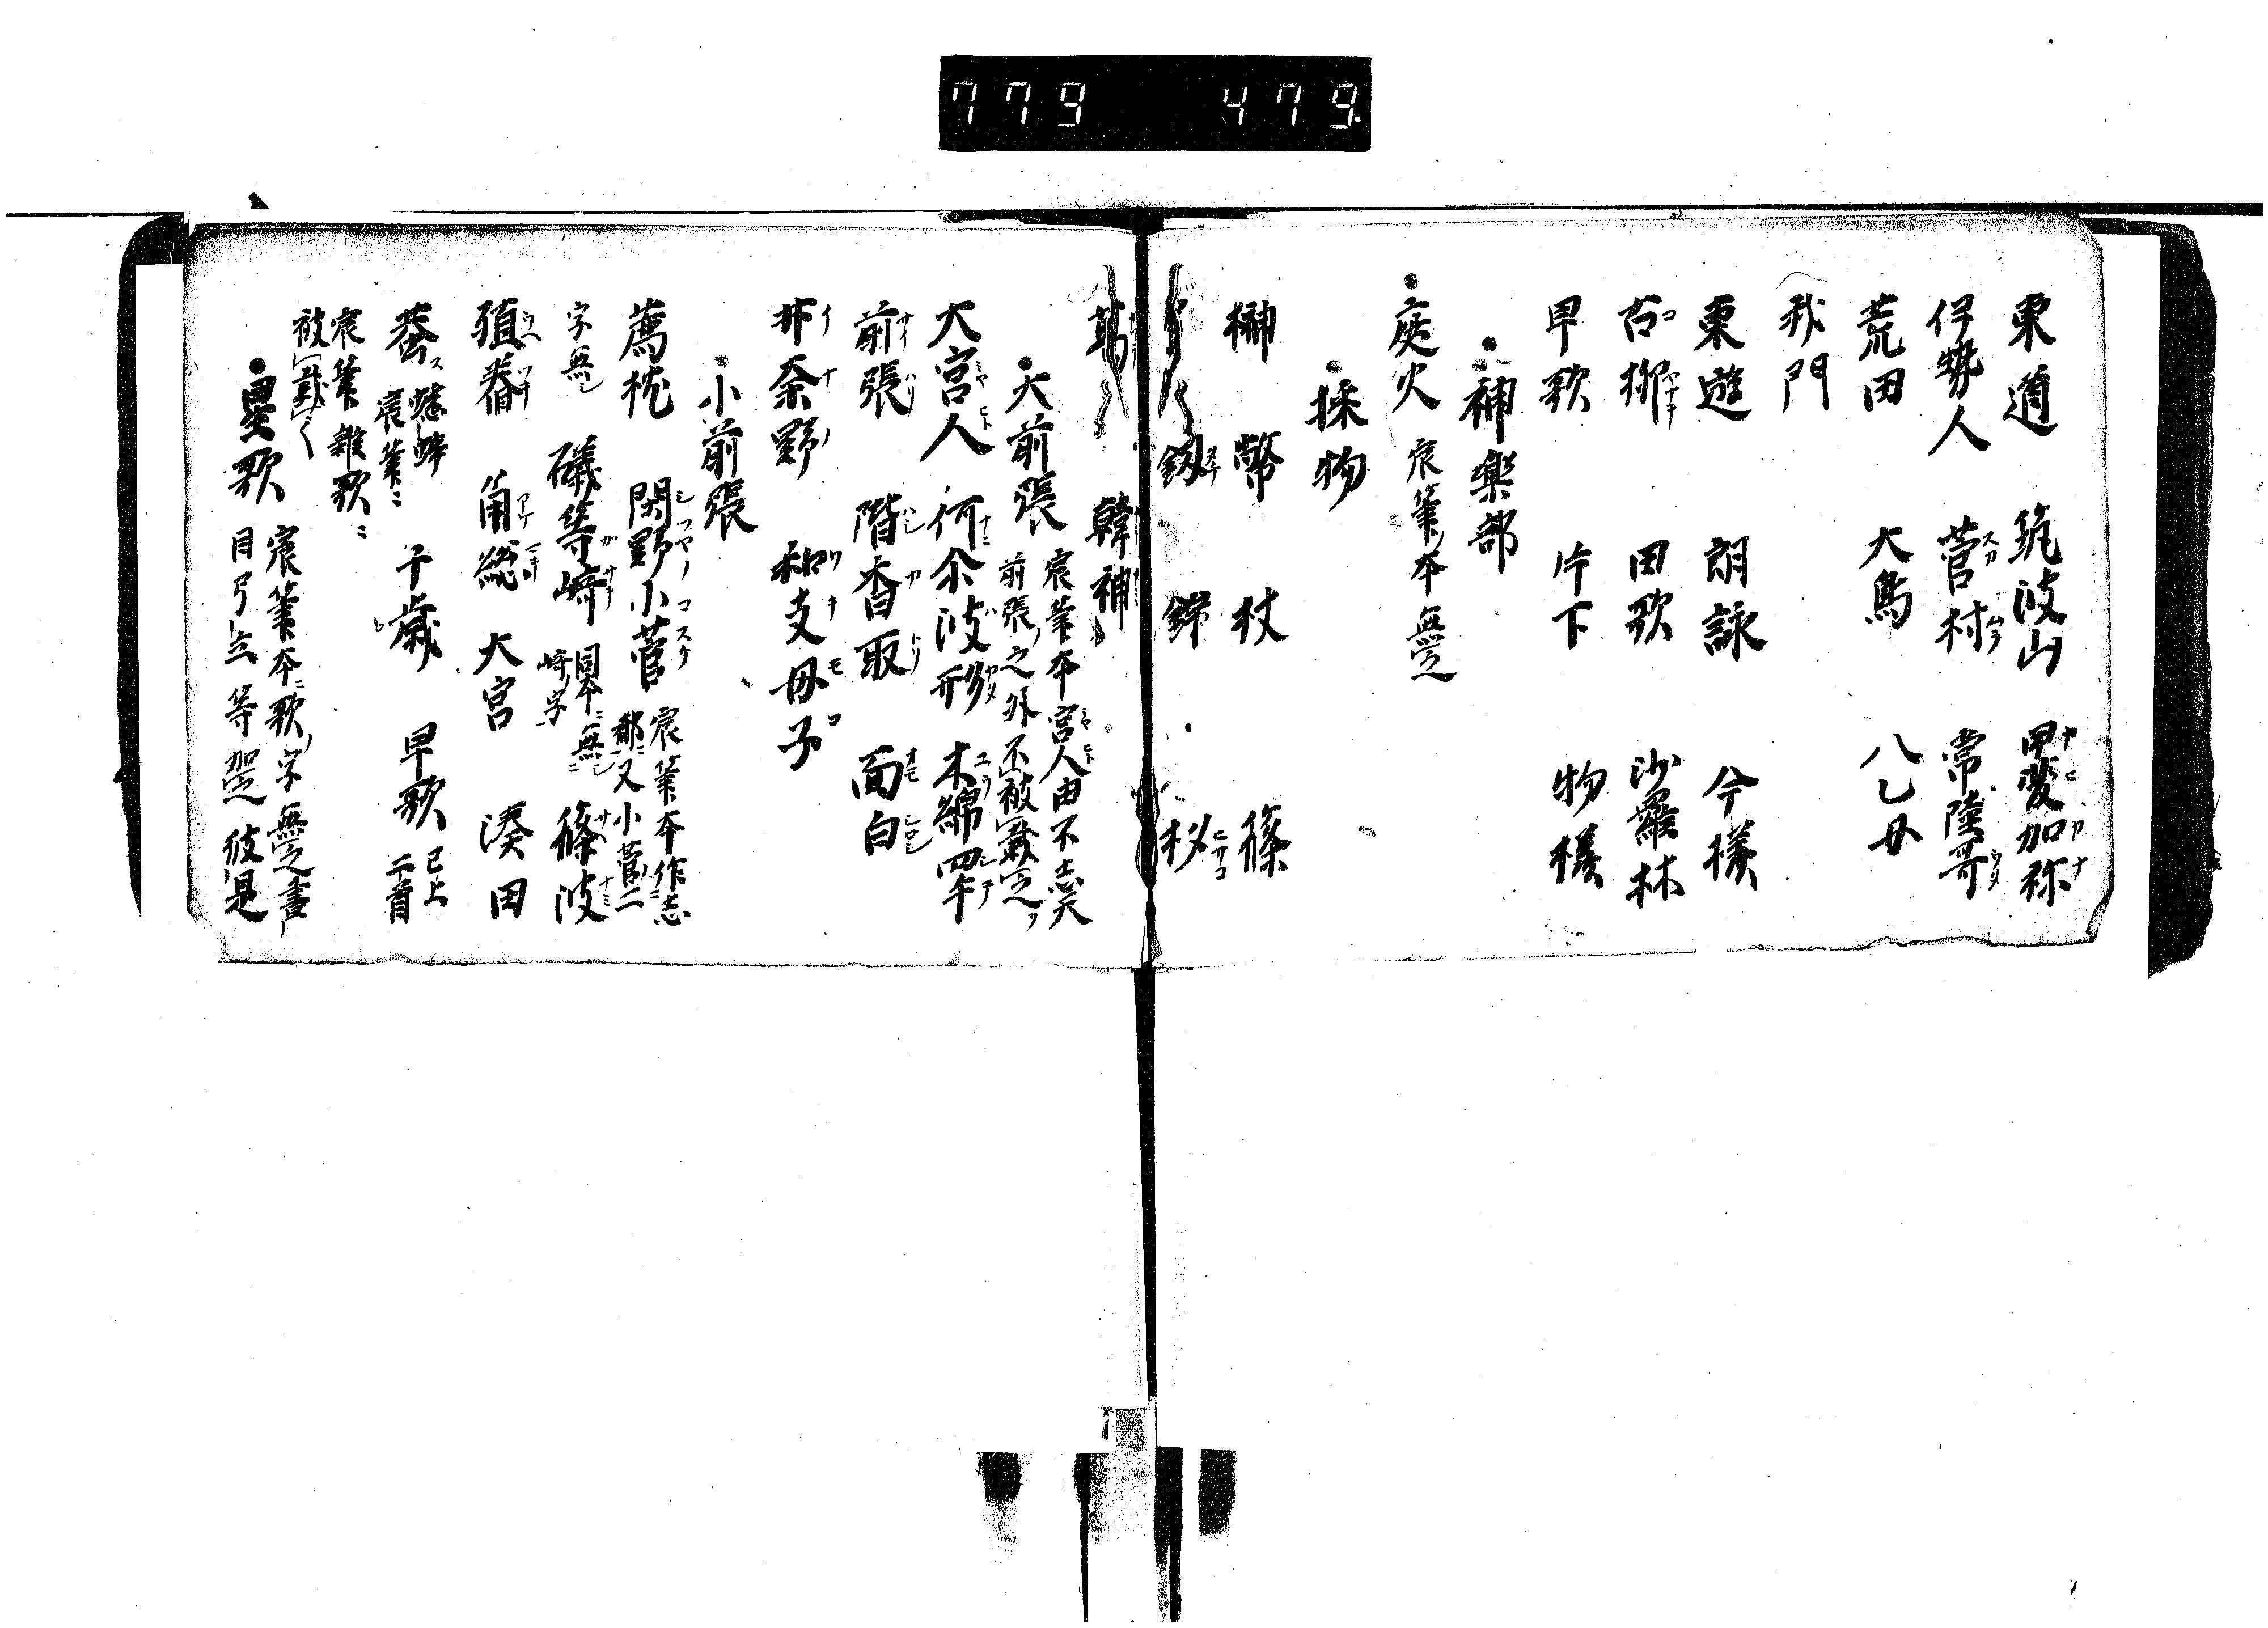 779 479.
東道 筑波山 甲斐加祢
伊勢人 菅村 常陸哥
荒田 大鳥 八乙女
我門
東遊 朗詠 今様
古柳 田歌 沙羅林
早歌 片下 物様
神楽部
庭火 宸筆ノ本無之
採物
榊 幣 杖 篠
弓 釼 鉾 杓
葛 韓神
大前張 宸筆本宮人由不志天
前張ノ之外不被載之
大宮人 何尒波形 木綿四手
前張 階香取 面白
井奈野 和支母子
小前張
薦枕 閑野小菅 宸筆本作志
都ニ又小菅ノ二
字無シ 礒等崎 同本ニ無シ
崎ノ字 篠波
殖舂 角総 大宮 湊田
蚕 蟋蟀
宸筆ニ 千歳 早歌 已上
二首
宸筆雑歌ニ
被載之
星歌 宸筆本ニ歌ノ字無之書
目弓立等加之 彼是